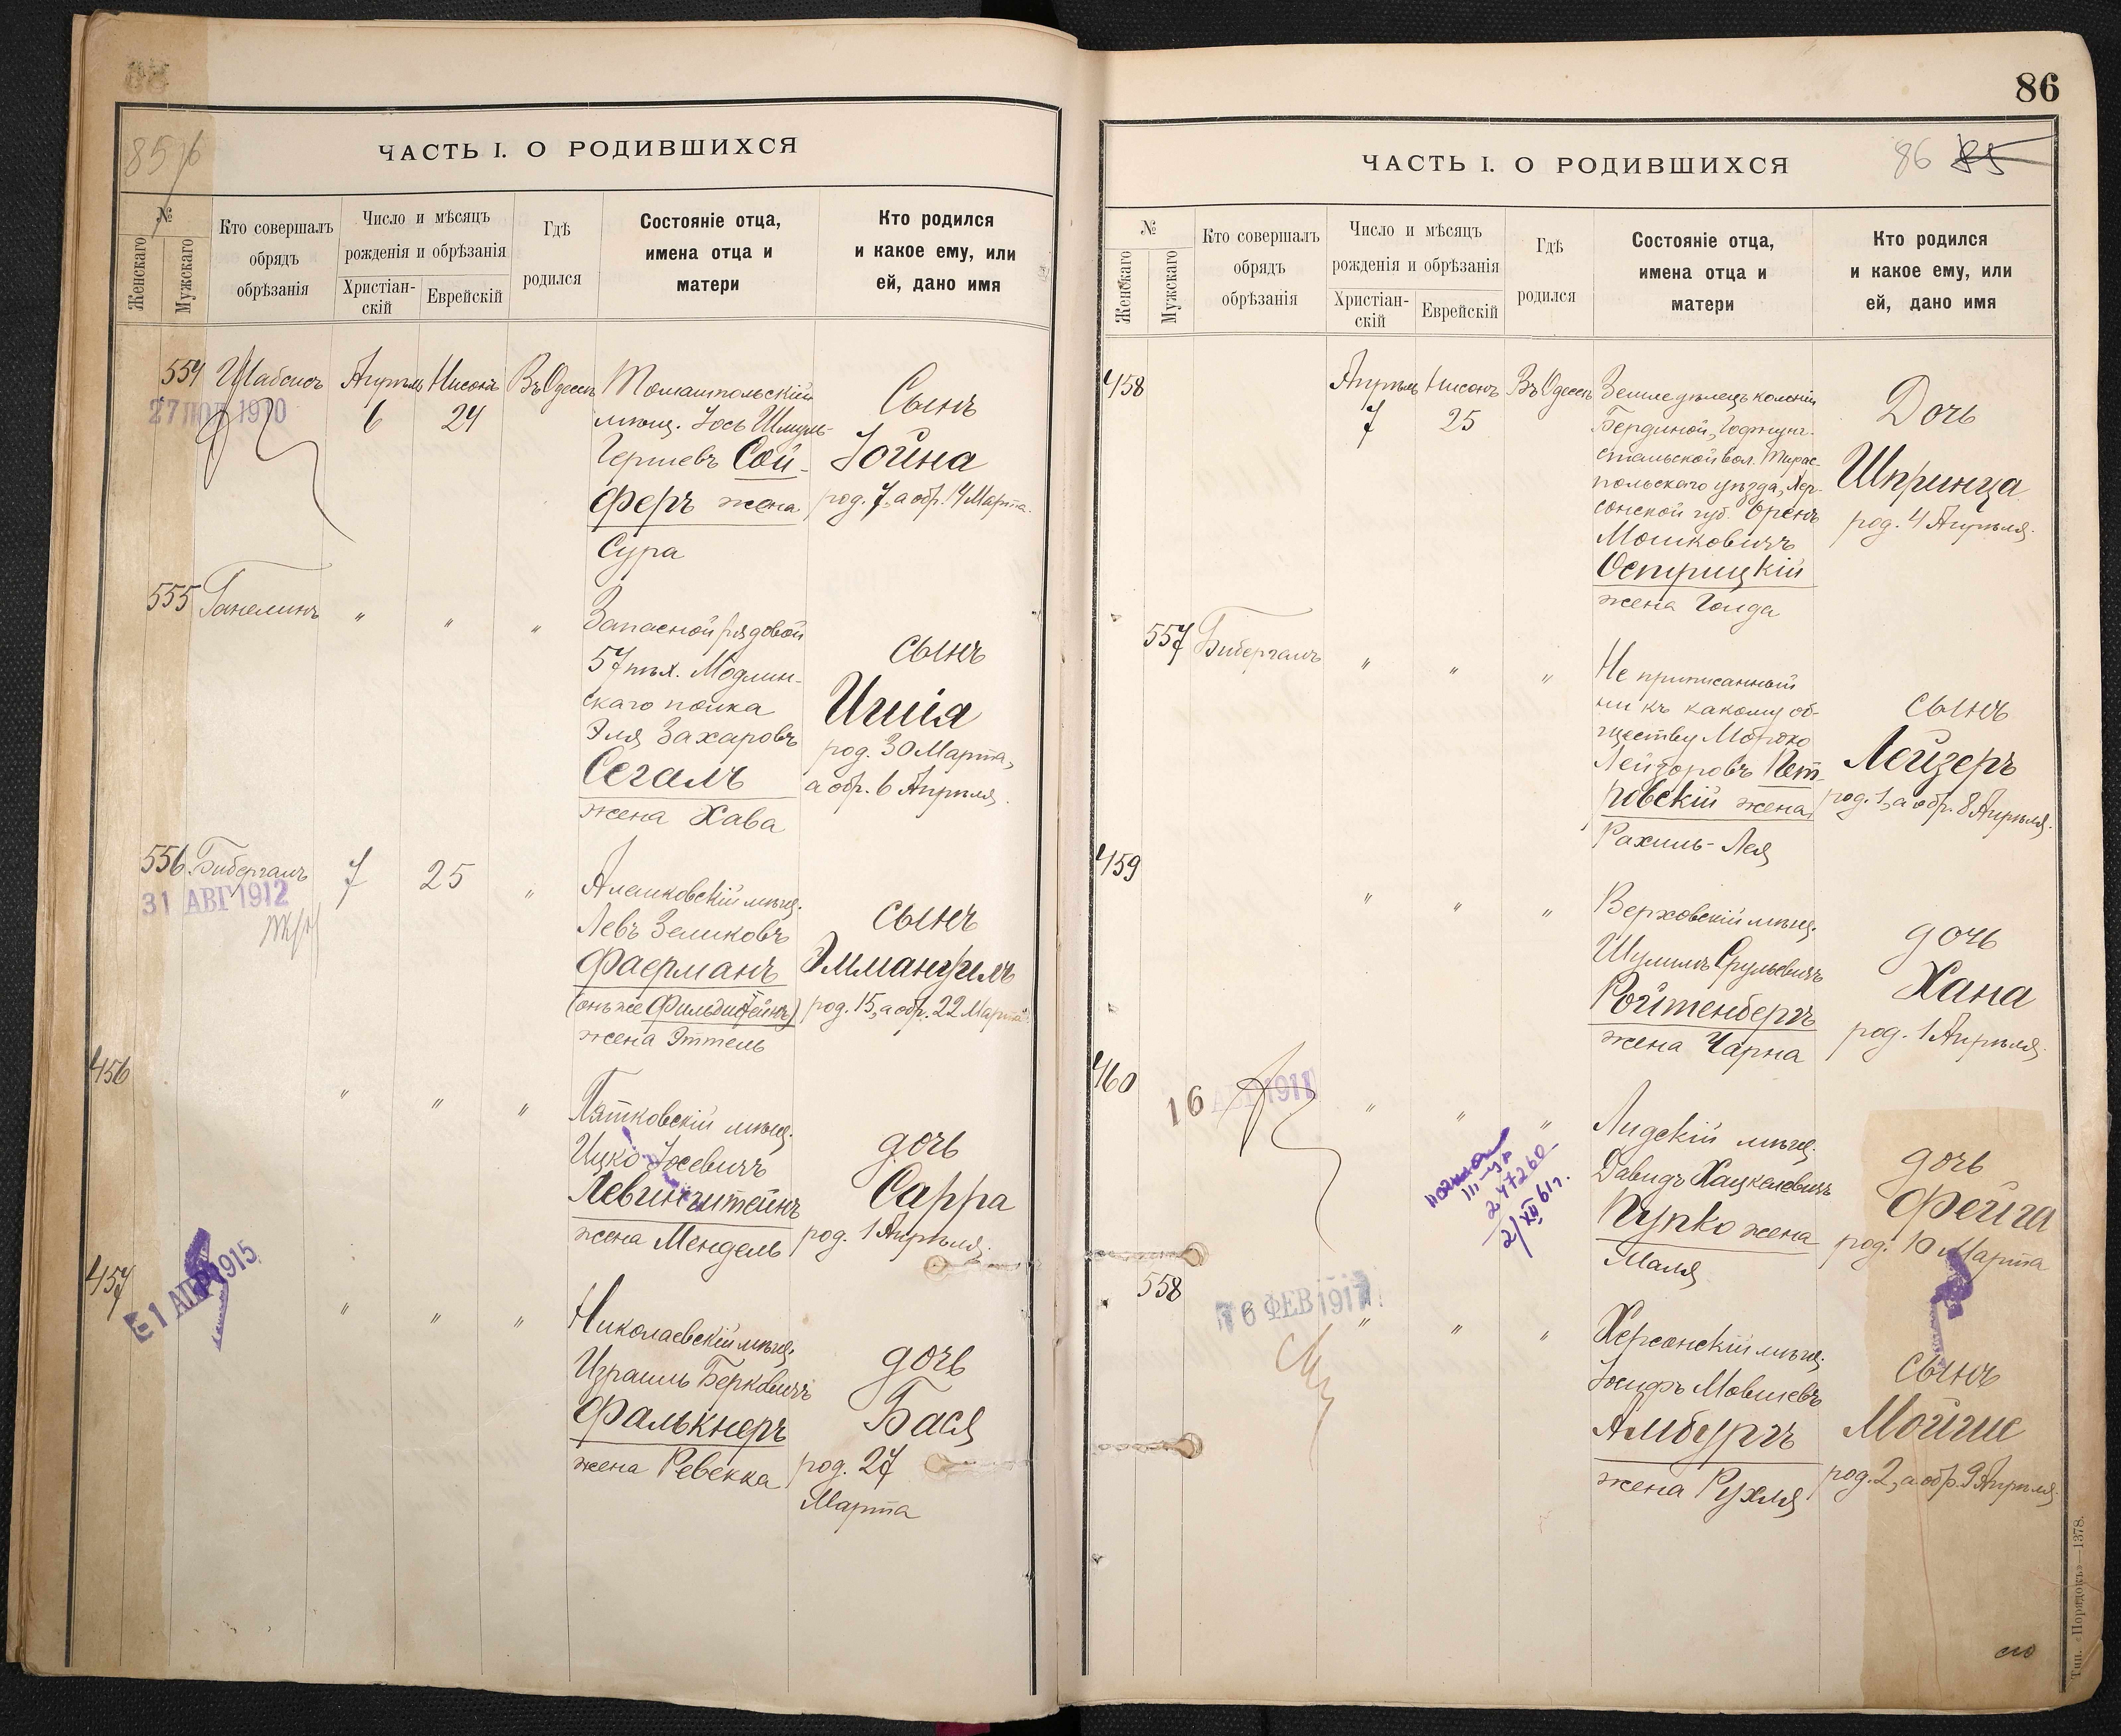 85 об
ЧАСТЬ I. О РОДИВШИХСЯ
№
Женскаго
Мужскаго
Кто совершалъ
обрядъ
обрѣзанія
Число и мѣсяцъ
рожденія и обрѣзанія
Христіан-
скій
Еврейскій
Гдѣ
родился
Состояніе отца,
имена отца и
матери
Кто родился
и какое ему, или
ей, дано имя
554 Шабсисъ Апрѣль Нисонъ Въ Одессѣ
6 24
27 1910
Томашпольскій
мѣщ. Іось Шмуль-
Гершевъ Сой-
феръ жена
Сура
Сынъ
Іойна
род. 7, а обр. 14 Марта.
555 Ганелинъ " " "
Запасной рядовой
57 пѣх. Модлин-
скаго полка
Эля Захаровъ
Сегалъ
жена Хава
сынъ
Ишія
род. 30 Марта,
а обр. 6 Апрѣля.
556 Бибергалъ 7 25 "
31 АВГ 1912
Алешковскій мѣщ.
Левъ Зеликовъ
Фаерманъ
(онъ же Фильдштейнъ)
жена Эттель
сынъ
Эммануилъ
род. 15, а обр. 22 Марта.
456 " " "
Пятковскій мѣщ.
Ицко Іосевичъ
Левинштейнъ
жена Мендель
дочь
Сарра
род. 1 Апрѣля.
457 " " "
1 АПР 1915
Николаевскій мѣщ.
Израиль Берковичъ
Фалькнеръ
жена Ревекка
дочь
Бася
род. 27
Марта
86
86 85
ЧАСТЬ I. О РОДИВШИХСЯ
№
Женскаго
Мужскаго
Кто совершалъ
обрядъ
обрѣзанія
Число и мѣсяцъ
рожденія и обрѣзанія
Христіан-
скій
Еврейскій
Гдѣ
родился
Состояніе отца,
имена отца и
матери
Кто родился
и какое ему, или
ей, дано имя
458 Апрѣль Нисонъ Въ Одессѣ
7 25
Земледѣлецъ колоніи
Бердиной, Гофнунг-
стальской вол. Тирас-
польскаго уѣзда, Хер-
сонской губ. Оренъ
Мошковичъ
Острицкій
жена Голда
Дочь
Шпринца
род. 4 Апрѣля.
557 Бибергалъ " " "
Не приписанный
ни къ какому об-
ществу Мотко
Лейзоровъ Пет-
ровскій жена
Рахиль-Лея
сынъ
Лейзеръ
род. 1, а обр. 8 Апрѣля.
459 " " "
Верховскій мѣщ.
Шулимъ Срульевичъ
Ройтенбергъ
жена Чарна
дочь
Хана
род. 1 Апрѣля.
460 " " "
16 АВГ 1911
247260
2/XII 61г.
Лидскій мѣщ.
Давидъ Хацкелевичъ
Пупко жена
Маля
дочь
Фейга
род. 10 Марта
558 " " "
16 ФЕВ 1917
Херсонскій мѣщ.
Іосифъ Мовшевъ
Амбургъ
жена Рухля
сынъ
Мойше
род. 2, а обр. 9 Апрѣля.
Тип. «Порядокъ»—1378.